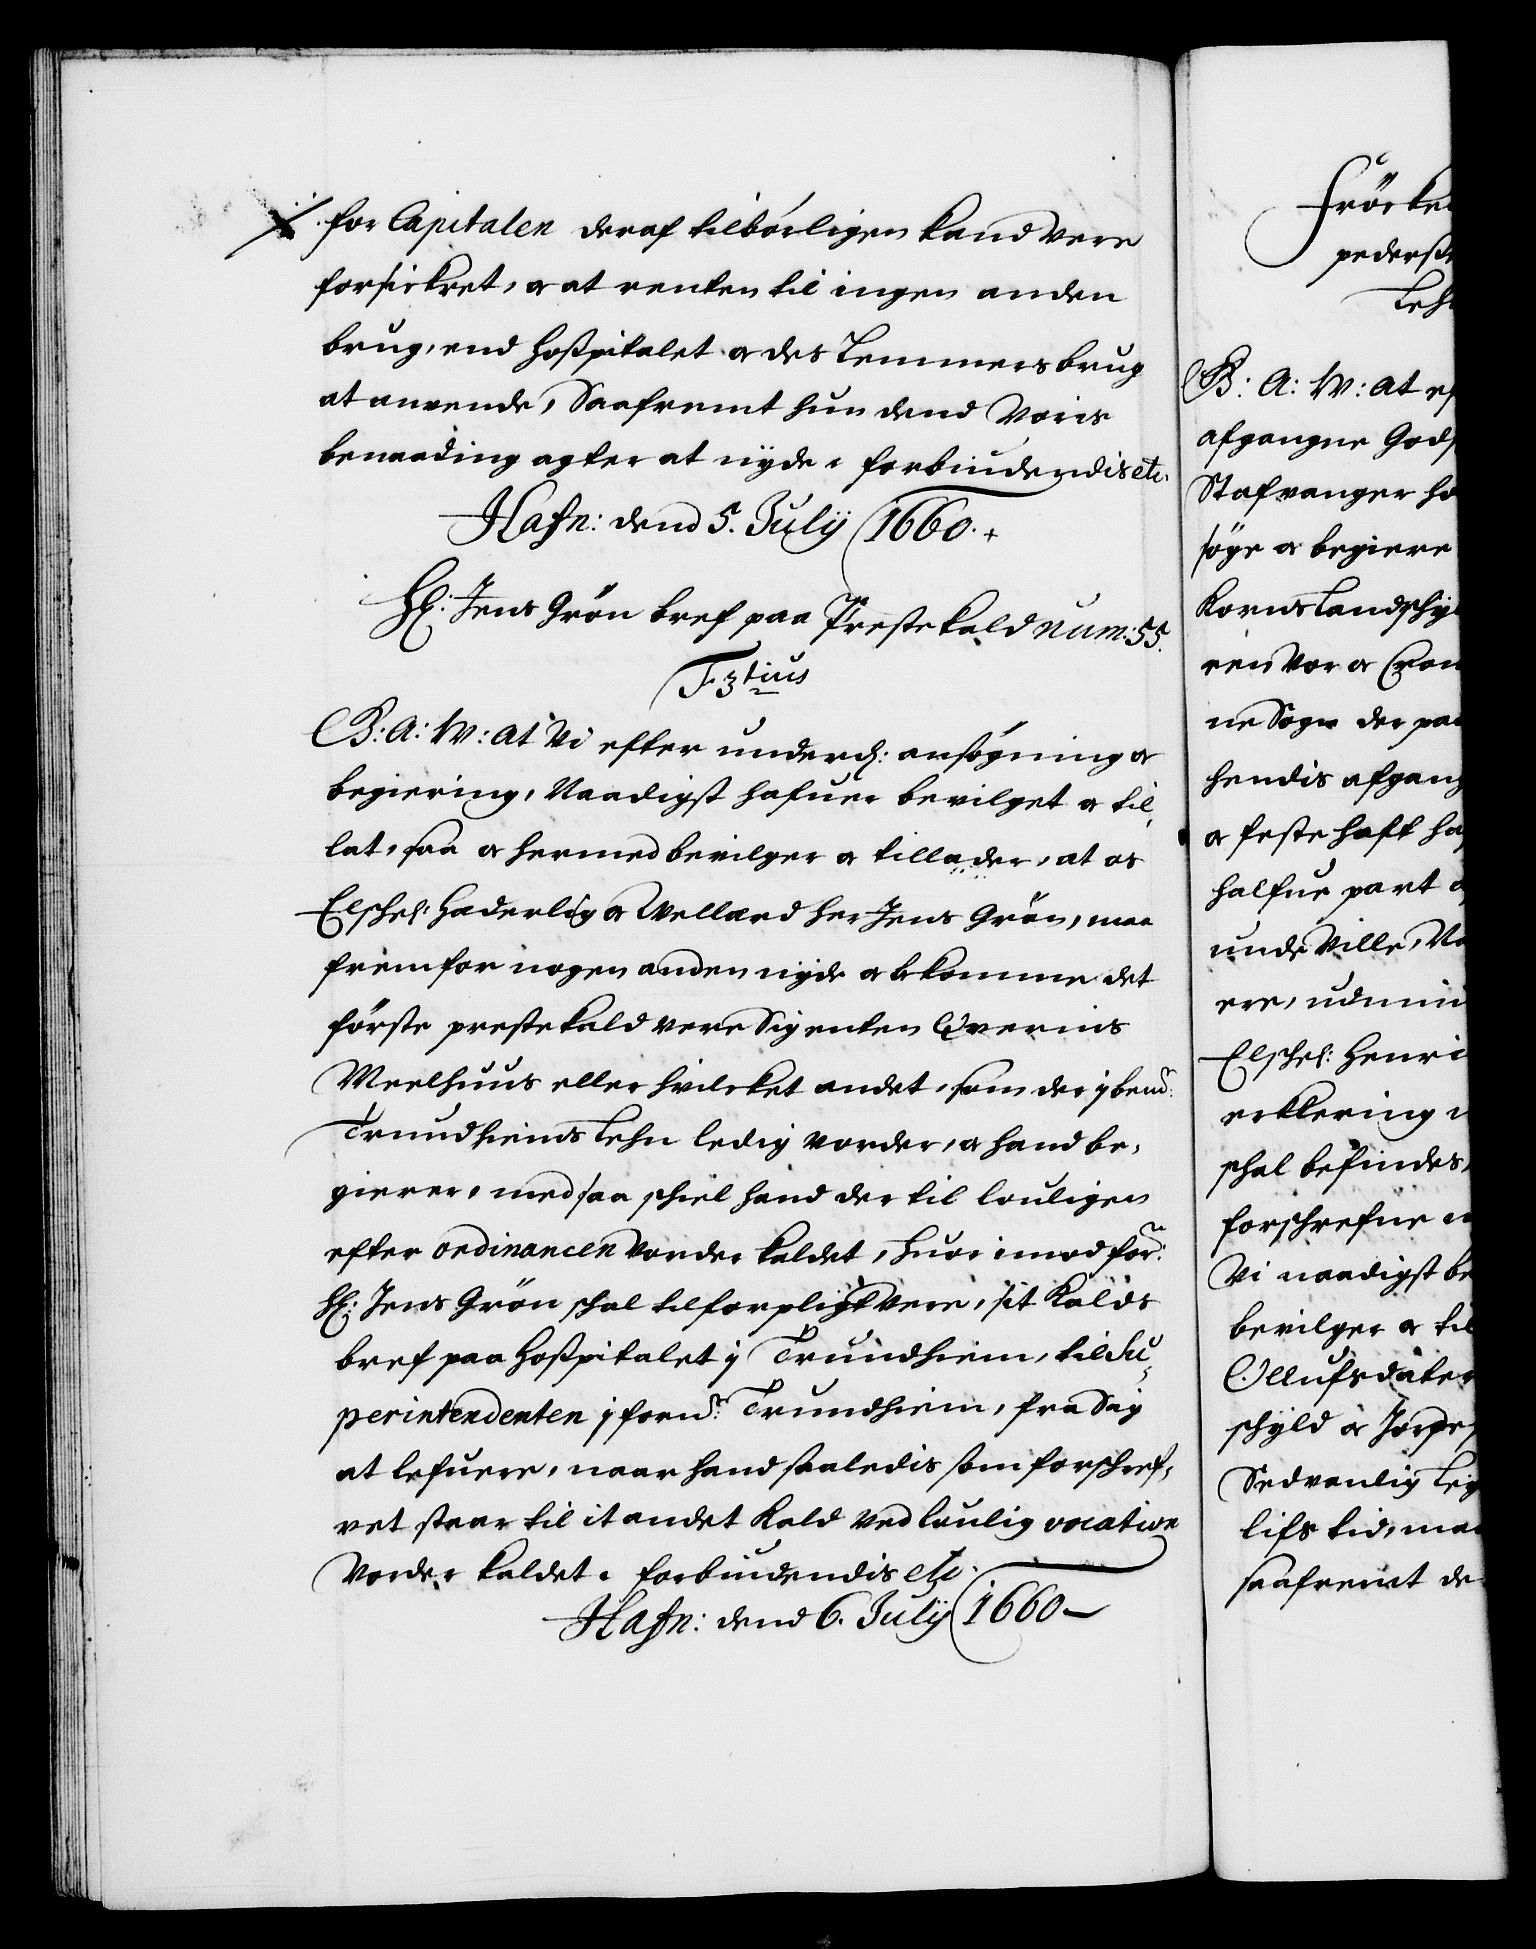 for Capitalen deraf tilbörligen kand vere
forsickret, oc at renten til ingen anden
brug, end Hospitalet oc des Lemmers brug
at anvende, Saafremt hun dend Voris
benaading agter at nyde. forbiudendis etc.
Hafn: dend 5. Julÿ 1660.
Hr: Jens Grön bref paa Prestekald Num: 55.
F. 3tius
B: A: W: at Vi efter underd: ansögning oc
begiering, Naadigst hafuer bevilget oc til,
lat, saa oc hermed bevilger oc tillader, at os
Elschel: Hæderlig oc Wellærd her Jens Grön, maa
fremfor nogen anden nyde oc bekomme det
förste prestekald vere Sig enten Qvernis
Meelhuus eller hvilcket andet, som der j bemte:
Trundhiems Lehn ledig vorder, oc hand be,
gierer, med saa schiel hand der til louligen
efter ordinancen Vorder kaldet, huor imod forne:
Hr: Jens Grön schal tilforpligt vere, sit Kalds
bref paa Hospitalet j Trundhiem, til Su,
perintendenten j fornte: Trundhiem, fra Sig
at lefuere, naar hand saaledis som forschref,
vet staar til it andet Kald ved loulig vocation
Vorder kaldet. forbiudendis etc.
Hafn: dend 6. Julÿ 1660
Fröcke
peders
Leh
B: A: W: at ef
afgangne Gods
Stafvanger ha
söge oc begiere
Korns Landschy
ren Vor oc Cron
ne Sogn der paa
hendis afgang
oc feste haft ha
halfue part
unde Ville, Na
ere, udmin
Elschel: Henri
erklering
schal befindes,
forschrefne
Vi naadigst be
bevilger oc til
Ollufsdater
schyld oc Jorde
Sedvanlig Leg
lifs tid, maa
saafremt de